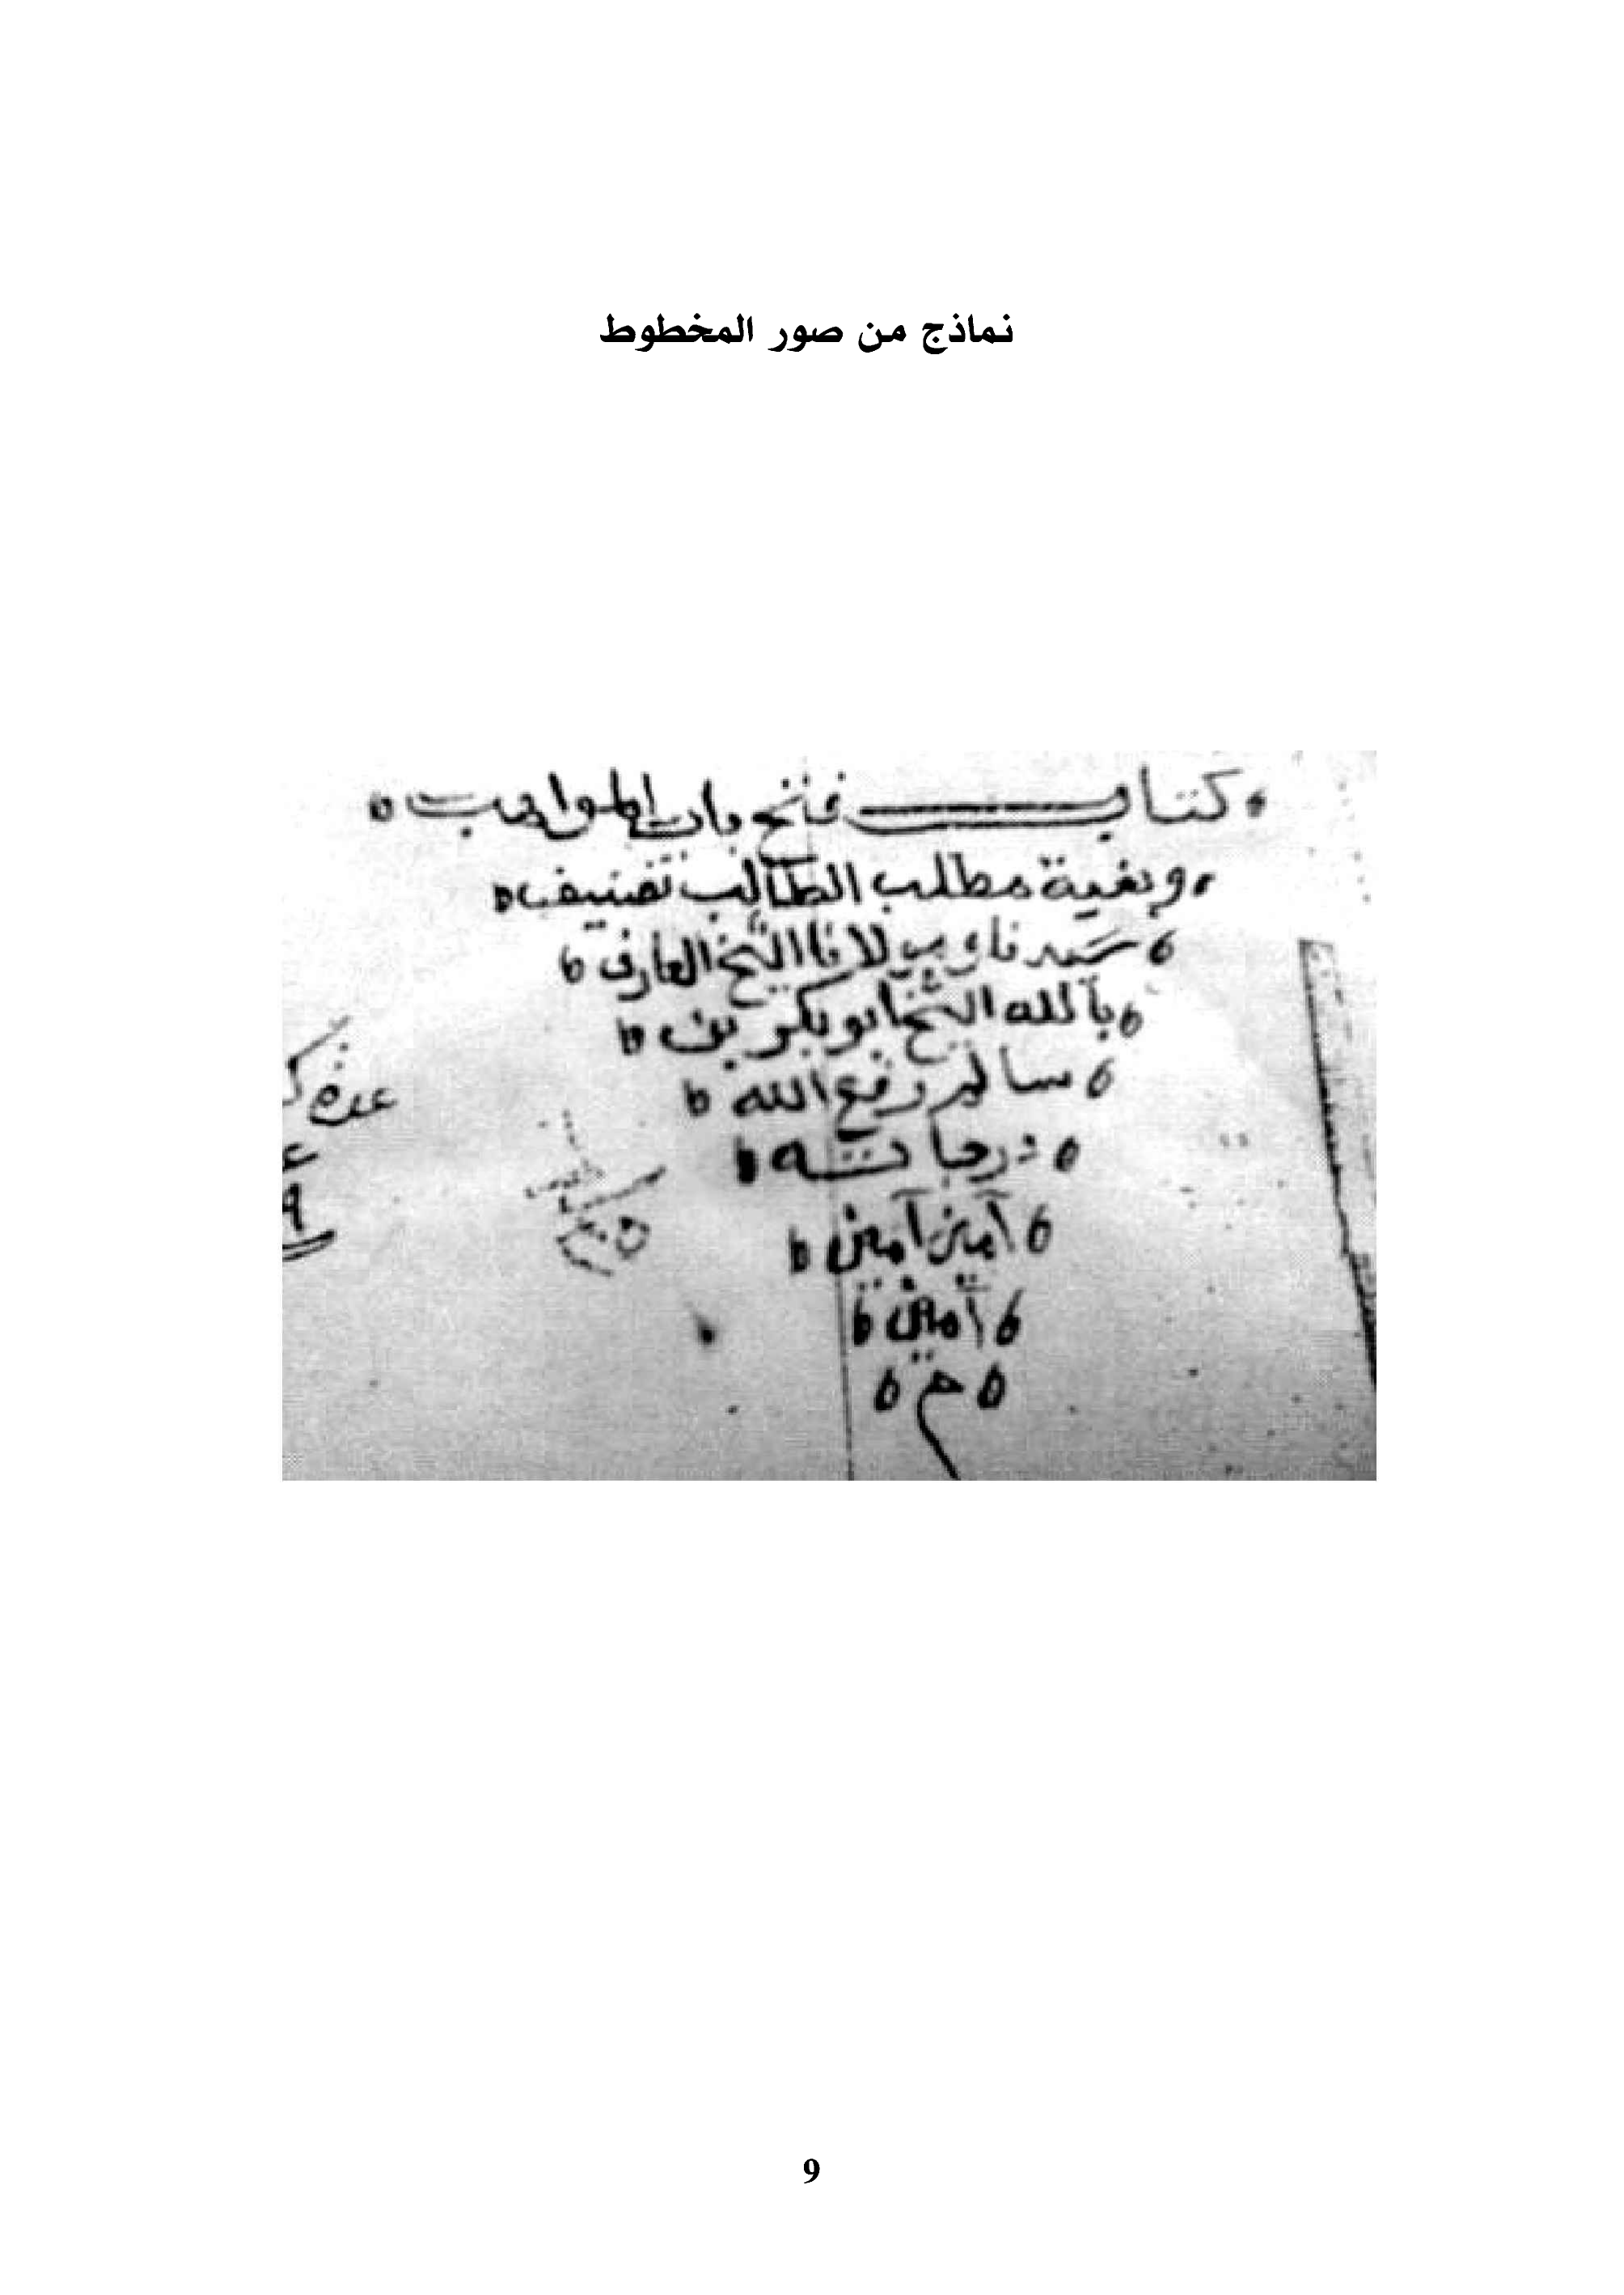 نماذج من صور المخطوط
كتاب فتح باب المواهب
وبغية مطلب الطالب تصنيف
سيدنا ومولانا الشيخ العارف
بالله الشيخ ابو بكر بن
سالم رفع الله
درجاته
آمين آمين
آمين
م
عدة
9